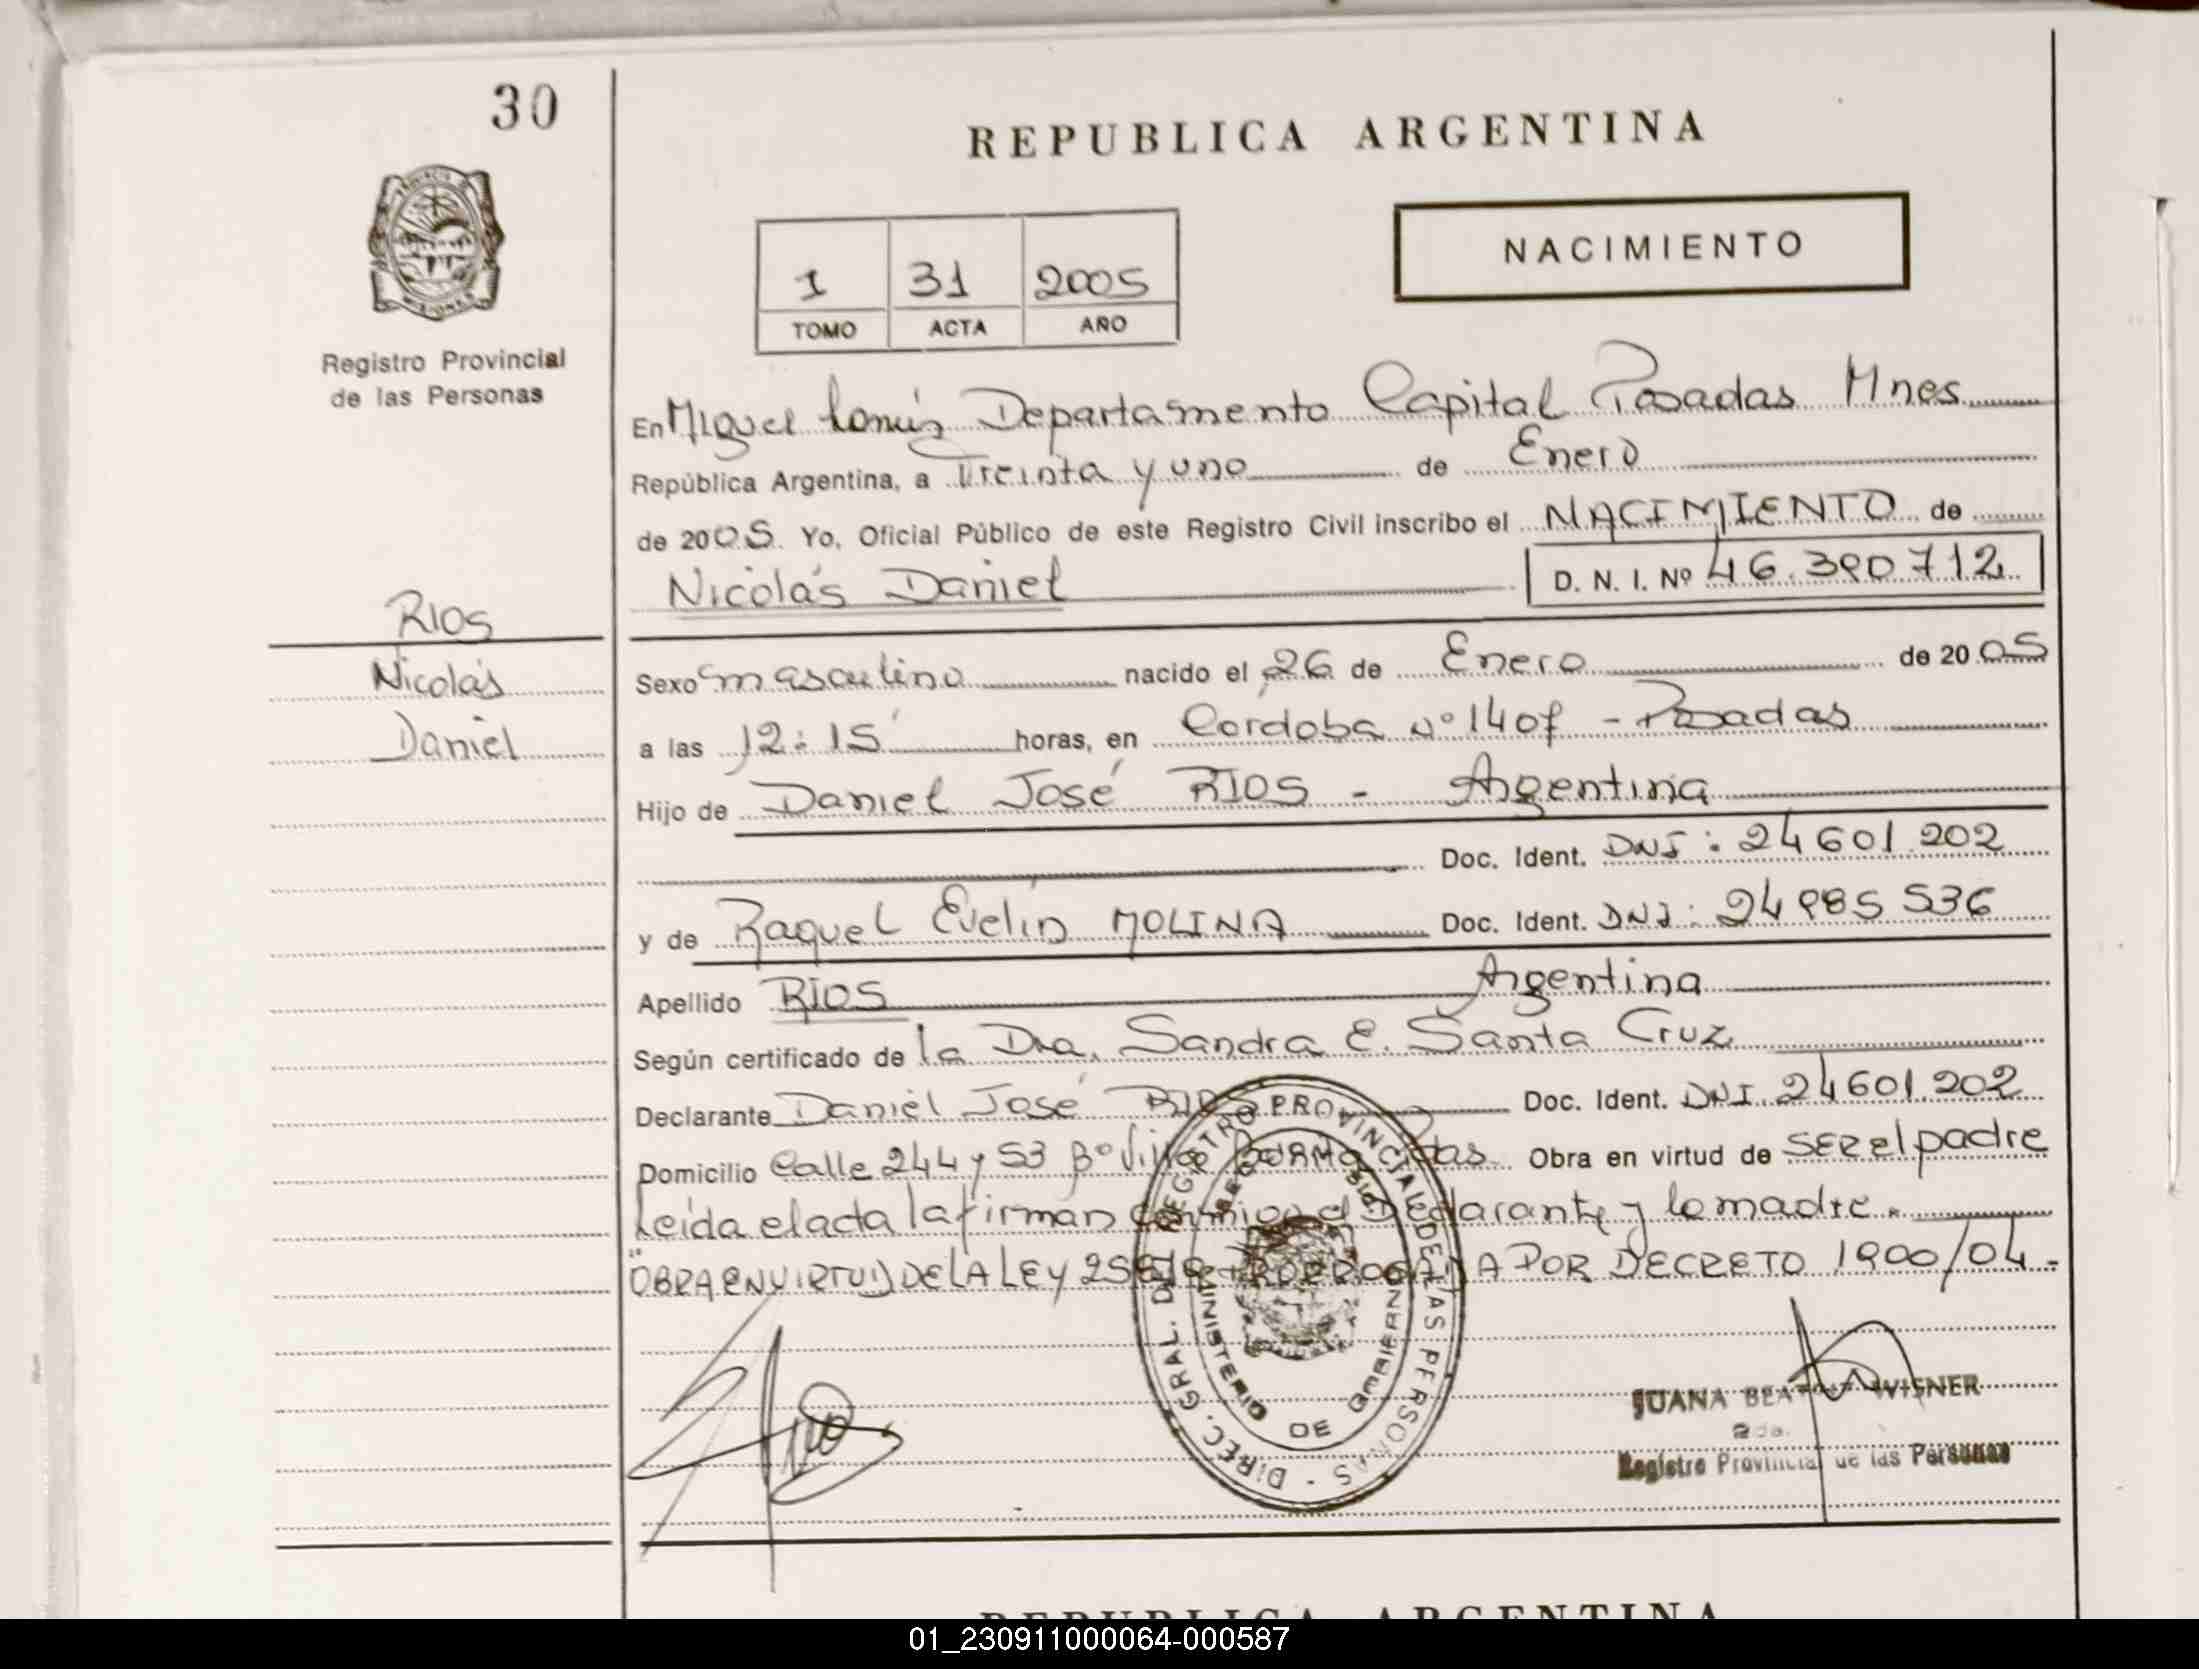 30
REPUBLICA ARGENTINA
NACIMIENTO
1 31 2005
TOMO ACTA AÑO
PROVINCIA DE
MISIONES
Registro Provincial
de las Personas
En Miguel Lanús Departamento Capital Posadas Mnes
República Argentina, a Treinta y uno de Enero
de 2005. Yo, Oficial Público de este Registro Civil inscribo el NACIMIENTO de
Nicolás Daniel D. N. I. Nº 46.390712
RIOS
Nicolás
Daniel
Sexo masculino nacido el 26 de Enero de 2005
a las 12:15 horas, en Córdoba Nº 1407 - Posadas
Hijo de Daniel José RIOS - Argentina
Doc. Ident. DNI: 24601.202
y de Raquel Evelin MOLINA Doc. Ident. DNI: 24985536
Apellido RIOS Argentina
Según certificado de la Dra. Sandra E. Santa Cruz
Declarante Daniel José RIOS Doc. Ident. DNI 24601.202
Domicilio Calle 244 y 53 Bº Villa Obra en virtud de SER el padre
Leída el acta la firman conmigo el Declarante y la madre.
"OBRA EN VIRTUD DE LA LEY PRORROGADA POR DECRETO 1900/04.-
DIREC. GRAL. DEL REGISTRO PROVINCIAL DE LAS PERSONAS
MINISTERIO DE GOBIERNO
JUANA BEATRIZ WISNER
Registro Provincial de las Personas
REPUBLICA ARGENTINA
01_230911000064-000587